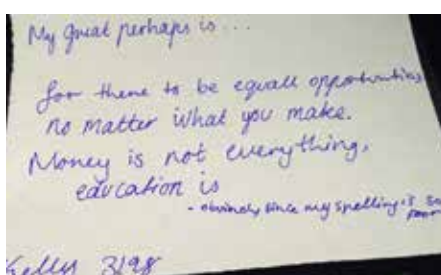 My great perhaps is...
for there to be equall opportunities
no matter what you make.
Money is not everything,
education is
- obviously since my spelling is so
poor
Kelly 3198